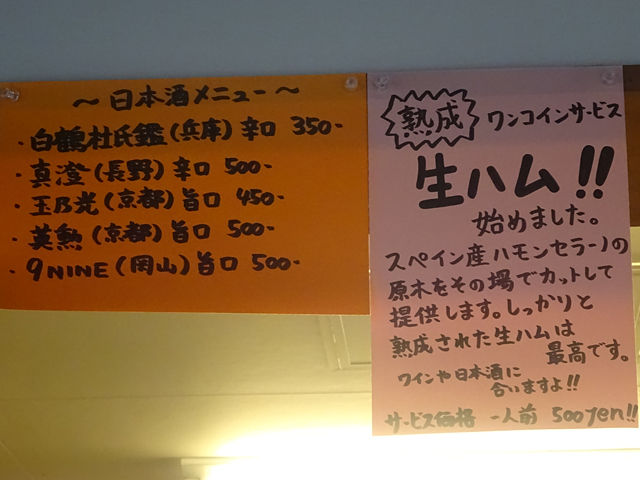 ～日本酒メニュー～
・白鶴杜氏鑑(兵庫)辛口 350-
・真澄(長野)辛口 500-
・玉乃光(京都)旨口 450-
・英勲(京都)旨口 500-
・9NINE(岡山)旨口 500-
熟成 ワンコインサービス
生ハム!!
始めました。
スペイン産ハモンセラーノの
原木をその場でカットして
提供します。しっかりと
熟成された生ハムは
最高です。
ワインや日本酒に
合いますよ!!
サービス価格 一人前 500yen!!